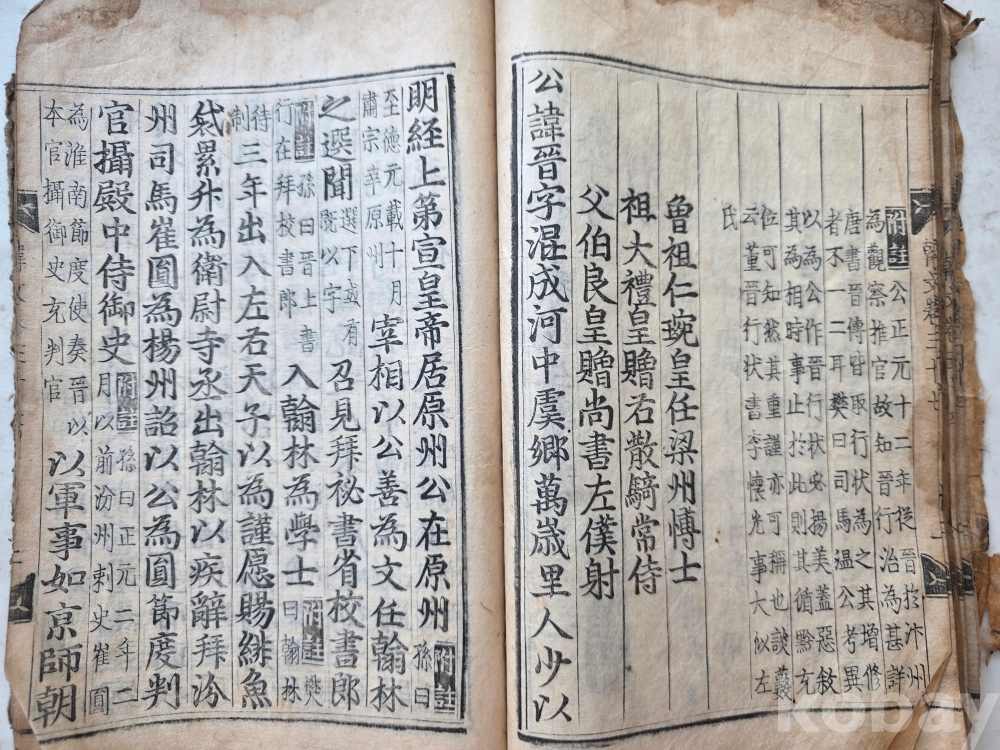 附註公正元十二年從晉於汴州
為觀察推官故知晉行治為甚詳
唐書晉傳皆取行狀為之其增修
者不一二耳樊曰司馬溫公考異
以為公作晉行狀必揚美蓋惡敘
其為相時事止於此則其循默充
位可知然其重謹亦可稱也談藪
云董晉行狀書李懷光事大似左
氏
魯祖仁琬皇任梁州愽士
祖大禮皇贈右散騎常侍
父伯良皇贈尚書左僕射
公諱晉字混成河中虞鄉萬歲里人少以
明經上第宣皇帝居原州公在原州附註孫曰
至德元載十月肅宗幸原州宰相以公善為文任翰林
之選聞選下或有既以字召見拜祕書省校書郎
附註孫曰晉上書行在拜校書郎入翰林為學士附註樊曰翰林
待制三年出入左右天子以為謹愿賜緋魚
袋累升為衛尉寺丞出翰林以疾辭拜汾
州司馬崔圓為楊州詔以公為圓節度判
官攝殿中侍御史附註孫曰正元二年二月以前汾州刺史崔圓
為淮南節度使奏晉以本官攝御史充判官以軍事如京師朝
韓文卷三十七
kobay